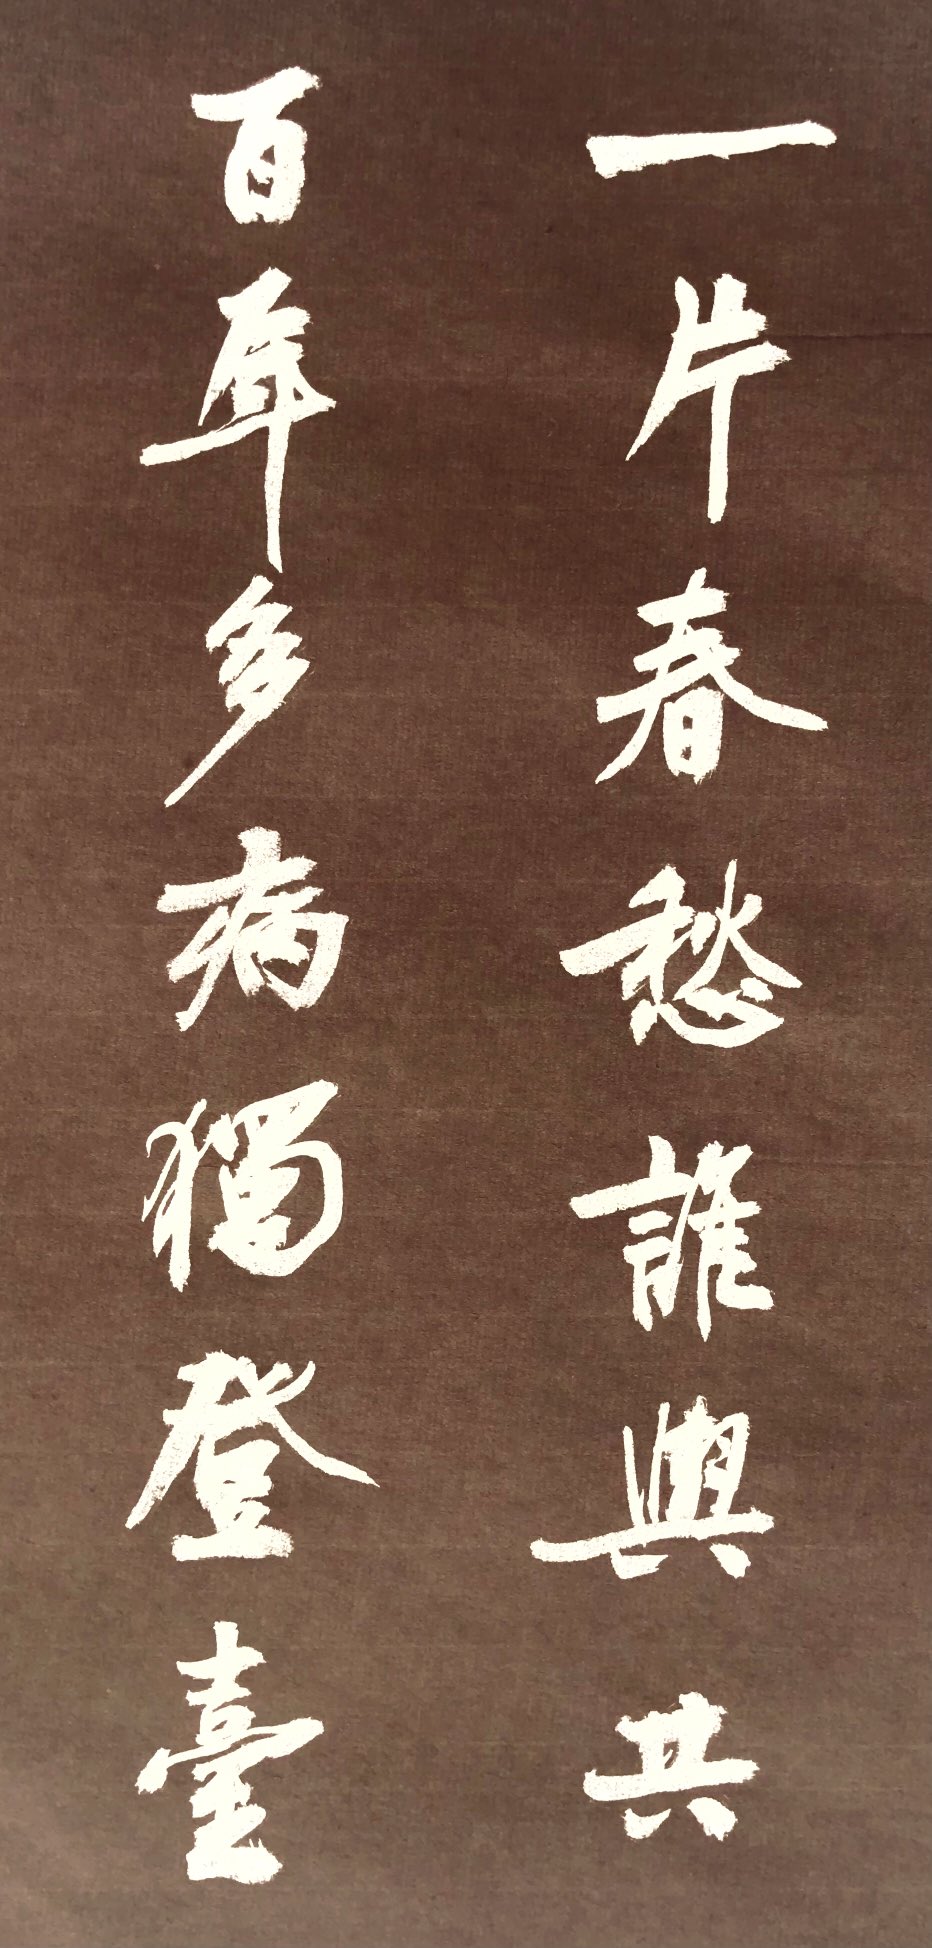 一片春愁誰與共
百年多病獨登臺